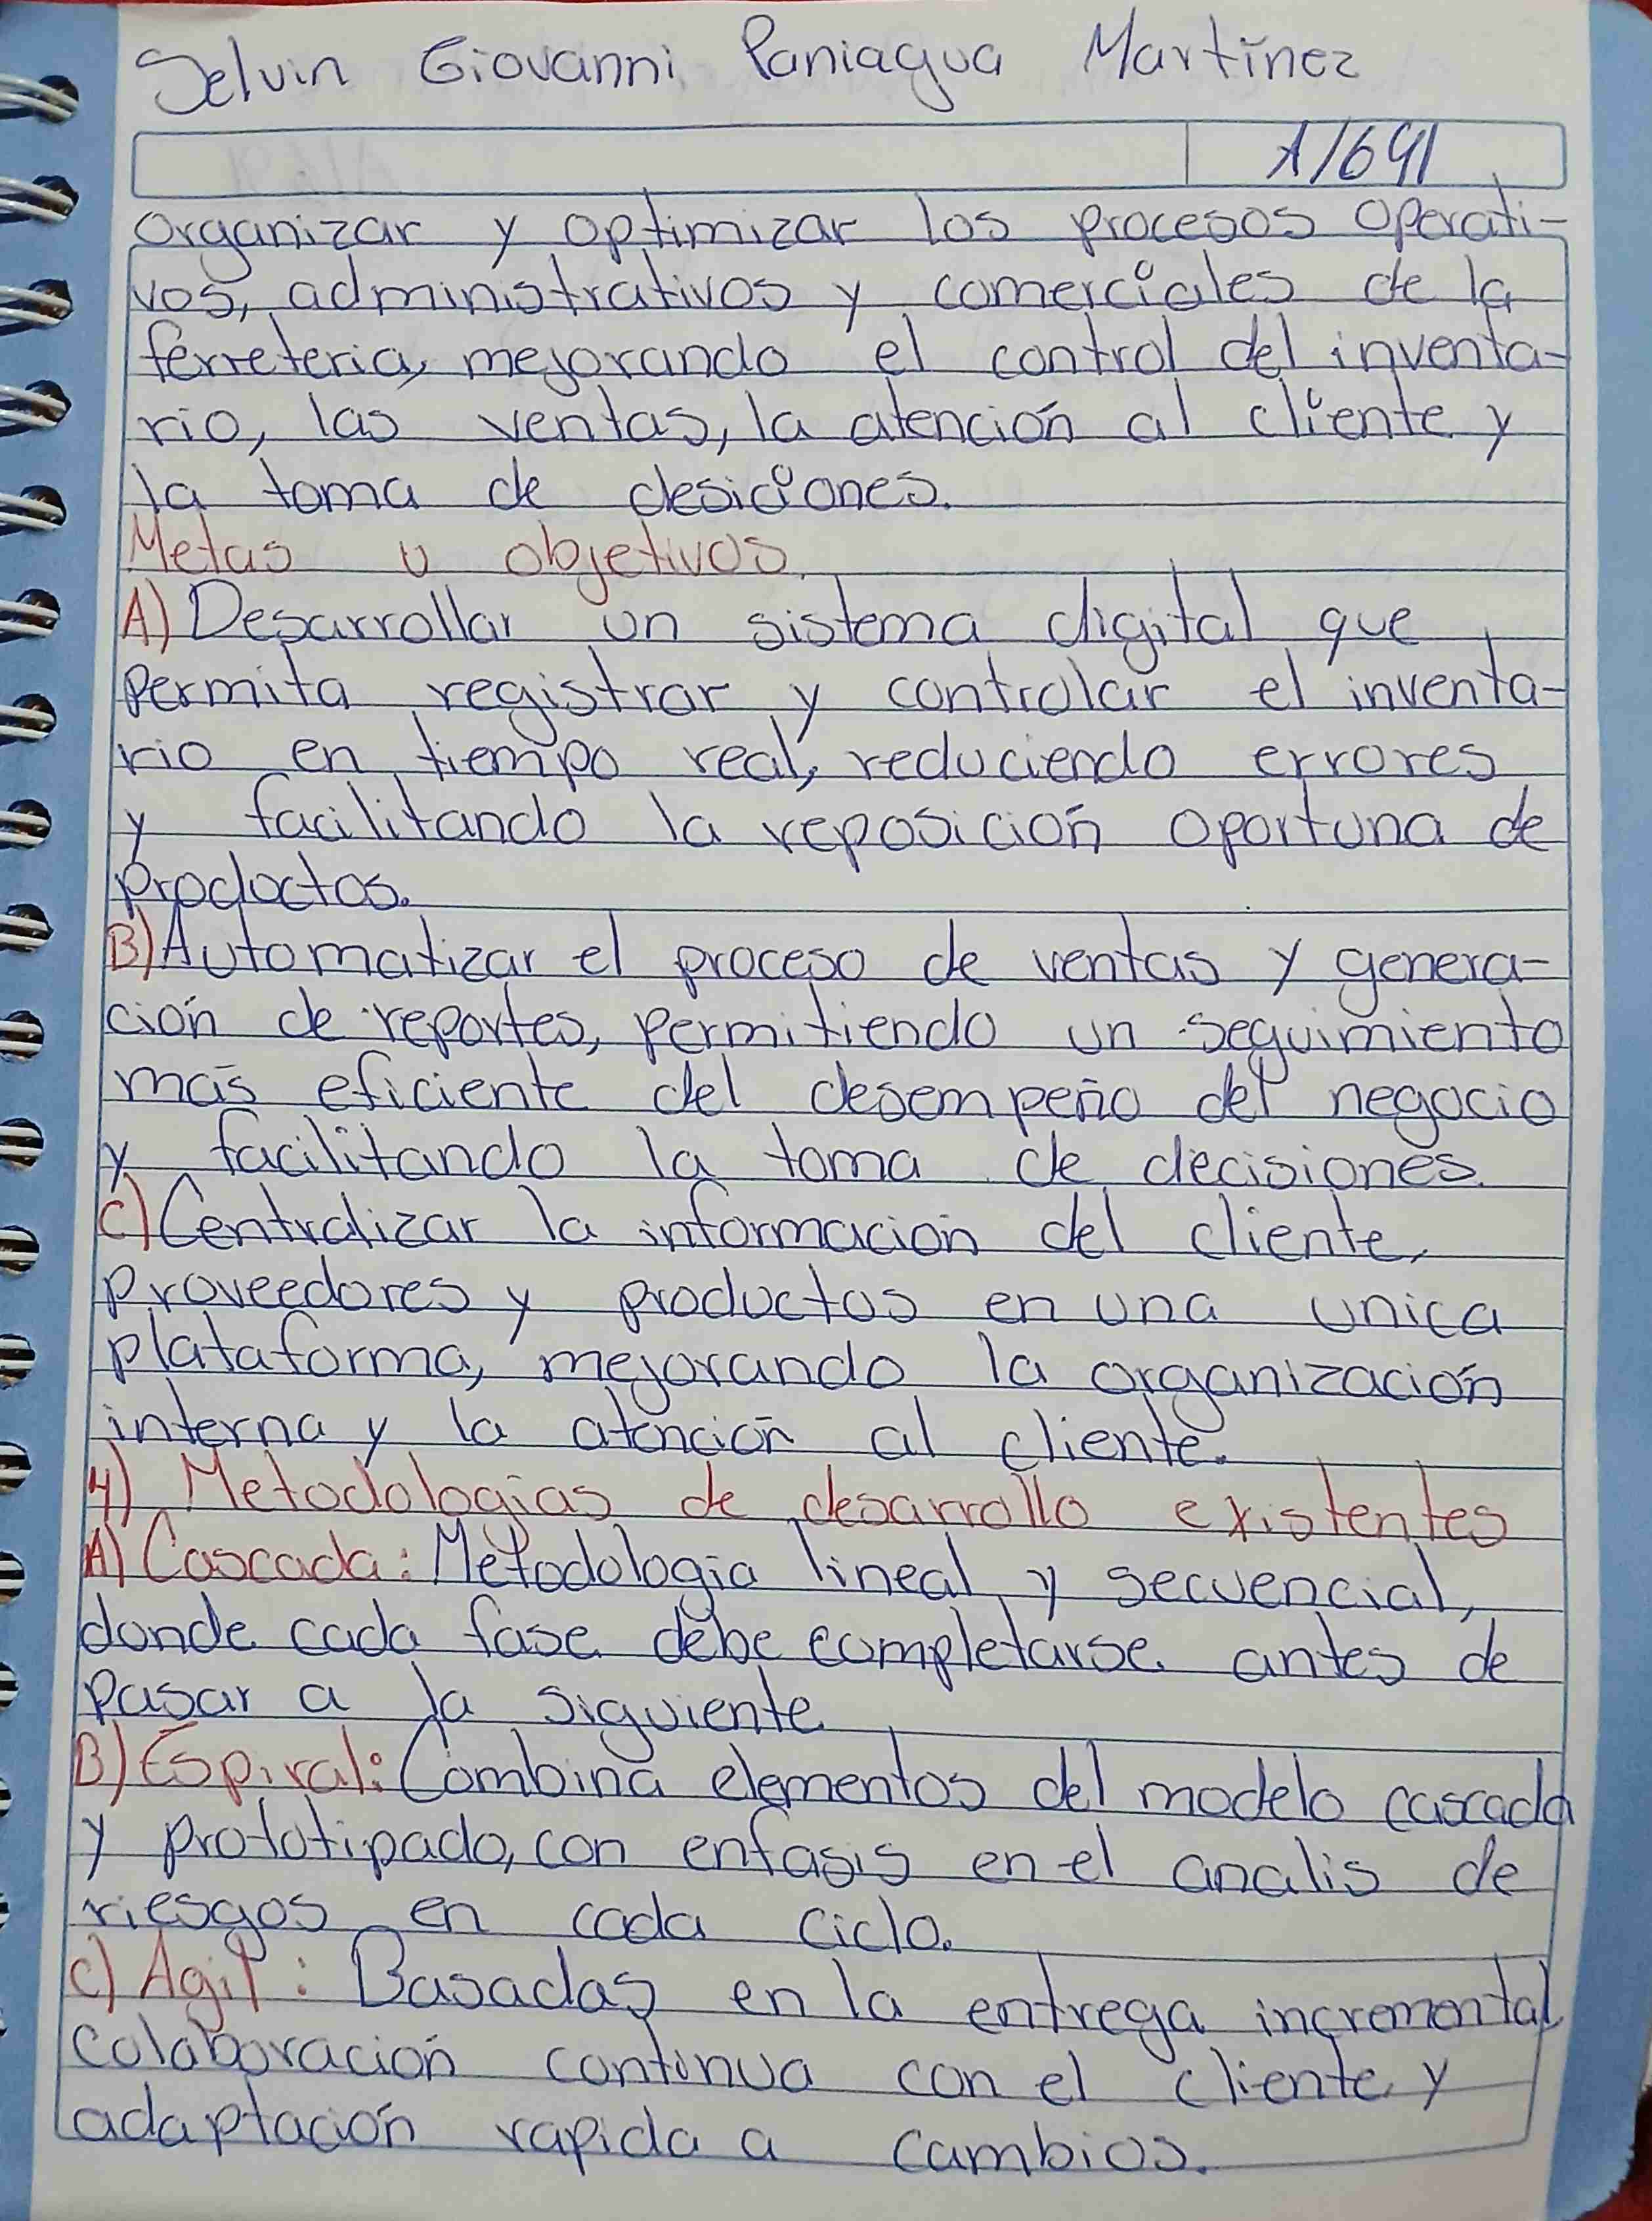 Selvin Giovanni Paniagua Martínez
A1691
Organizar y optimizar los procesos operati-
vos, administrativos y comerciales de la
ferreteria, mejorando el control del inventa-
rio, las ventas, la atención al cliente y
la toma de desiciones.
Metas u objetivos.
A) Desarrollar un sistema digital que
permita registrar y controlar el inventa-
rio en tiempo real, reduciendo errores
y facilitando la reposición oportuna de
productos.
B) Automatizar el proceso de ventas y genera-
ción de reportes, permitiendo un seguimiento
más eficiente del desempeño del negocio
y facilitando la toma de decisiones.
C) Centralizar la información del cliente,
proveedores y productos en una unica
plataforma, mejorando la organización
interna y la atención al cliente.
4) Metodologias de desarrollo existentes
A) Cascada: Metodologia lineal y secuencial,
donde cada fase debe completarse antes de
pasar a la siguiente
B) Espiral: Combina elementos del modelo cascada
y prototipado, con enfasis en el analis de
riesgos en cada ciclo.
C) Agil: Basadas en la entrega incremental
colaboración continua con el cliente y
adaptación rapida a cambios.